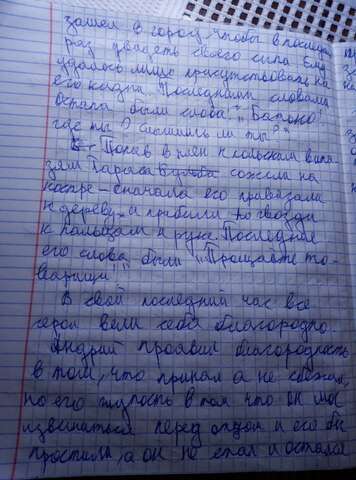 зашел в город, чтобы в последн
раз увидеть своего сына. Ему
удалось лишь присутствовать на
его казни. Последними словами
Остапа были слова: „Батько!
где ты? Слышишь ли ты?"
Попав в плен к польским
Тараса Бульба сожгли на
костре – сначала его привязали
к дереву и прибили по гвоздю
к пальцам и руке. Последние
его слова были „Прощайте то-
варищи!"
В свой последний час все
герои вели себя благородно.
Андрий проявил благородность
в том, что принял а не сбежал,
но его глупость в том что он мог
извиниться перед отцом и его бы
простили, а он не стал и остался